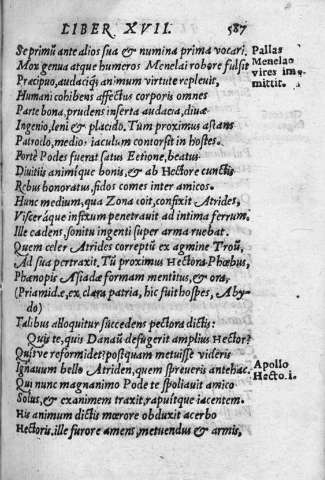 LIBER XVII. 587
Se primū ante alios sua & numina prima vocari.
Pallas
Menelao
vires im-
mittit.
Mox genua atque humeros Menelai robore fulsit
Præcipuo, audaciq; animum virtute repleuit,
Humani cohibens affectus corporis omnes
Parte bona, prudens inserta audacia, diuæ
Ingenio, leni & placido. Tum proximus astans
Patroclo, medio iaculum contorsit in hostes.
Fortè Podes fuerat satus Eetione, beatus
Diuitiis animíque bonis, & ab Hectore cunctis
Rebus honoratus, fidos comes inter amicos.
Hunc medium, qua Zona coit, confixit Atrides,
Visceráque infixum penetrauit ad intima ferrum.
Ille cadens, sonitu ingenti super arma ruebat.
Quem celer Atrides correptū ex agmine Troū,
Ad sua pertraxit. Tū proximus Hectora Phœbus,
Phænopis Asiadæ formam mentitus, & ora,
(Priamidæ, ex clara patria, hic fuit hospes, Aby-
do)
Talibus alloquitur succedens pectora dictis:
Quis te, quis Danaū defugerit amplius Hector?
Quisve reformidet? postquam metuisse videris
Ignauum bello Atriden, quem spreueris antehac.
Apollo
Hecto.i.
Qui nunc magnanimo Pode te spoliauit amico
Solus, & exanimem traxit, rapuitque iacentem.
His animum dictis mœrore obduxit acerbo
Hectoris. ille furore amens, metuendus & armis,